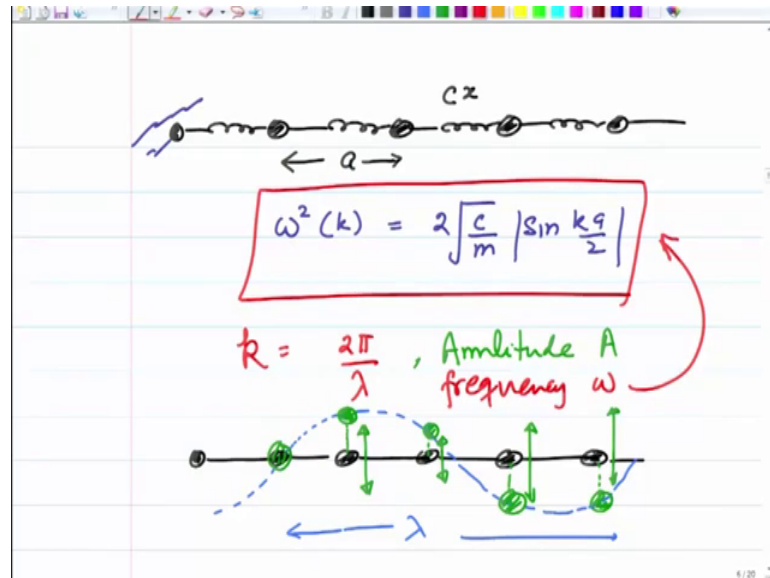 cx
← a →
ω²(k) = 2√(c/m) |sin ka/2|
k = 2π/λ , Amplitude A
frequency ω
λ
6/20